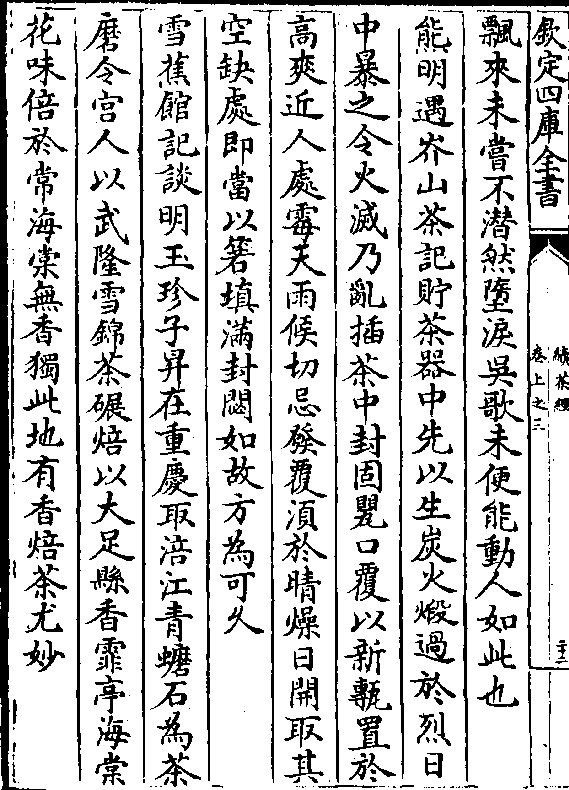 欽定四庫全書
續茶經
卷上之三
飄來未嘗不潸然墮淚吳歌未便能動人如此也
熊明遇岕山茶記貯茶器中先以生炭火煅過於烈日
中暴之令火滅乃亂插茶中封固甖口覆以新甎置於
高爽近人處霉天雨候切忌發覆湏於晴燥日開取其
空缺處即當以箬填滿封閟如故方為可久
雪蕉館記談明玉珍子昇在重慶取涪江青䗶石為茶
磨令宫人以武隆雪錦茶碾焙以大足縣香霏亭海棠
花味倍於常海棠無香獨此地有香焙茶尤妙